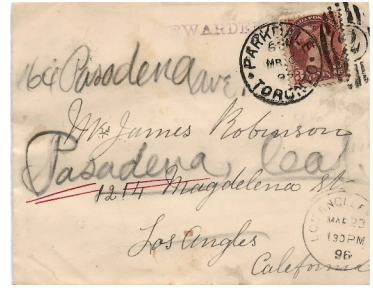 FORWARDED
PARKDALE
MR
9
TORONTO
164 Pasadena ave
Mrs James Robinson
Pasadena, Cal.
1214 Magdelena st
Los Angles
California
LOS ANGELES
MAR 23
130 PM
96